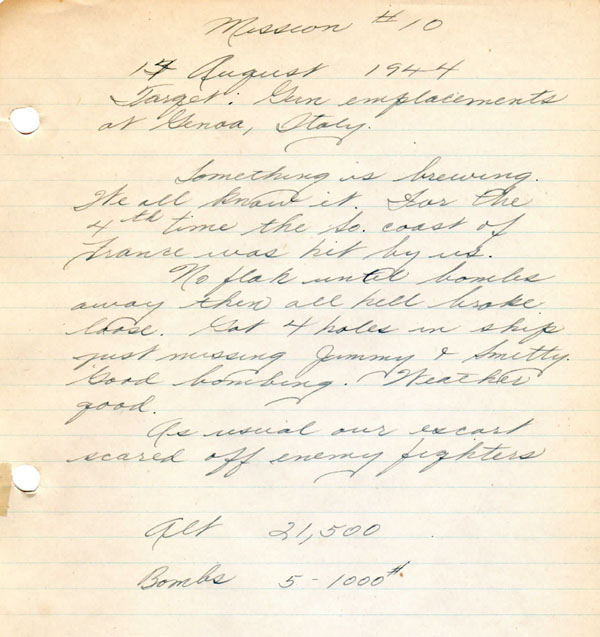 Mission #10
14 August 1944
Target: Gun emplacements
at Genoa, Italy.
Something is brewing.
We all know it. For the
4th time the So. coast of
France was hit by us.
No flak until bombs
away then all hell broke
loose. Got 4 holes in ship
just missing Jimmy & Smitty.
Good bombing. Weather
good.
As usual our escort
scared off enemy fighters
Alt 21,500
Bombs 5-1000#